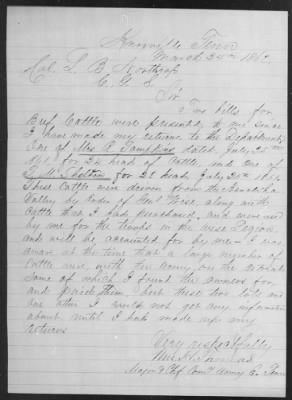 Knoxville Tenn
March 24th 1862
Col. L. B. Northrop
C. G. S.
Sir
Two bills for
Beef Cattle were presented to me since
I have made my returns to the Department
One of Mrs A Tompkins dated July 25
1861 for 24 head of Cattle, and one of
for 28 head July 24th 1861
These Cattle were driven from the Kanawha
Valley by order of Genl Wise, along with
Cattle that I had purchased, and were used
by me for the troops in the Wise Legion
and will be accounted for by me - I was
aware at the time that a large number of
Cattle were with the Army on the retreat
some of which I found the owners for
and paid them - but these two lots
are after I could not get any information
about until I had made up my
returns
Very respectfully
Major & Chf Comy Army E. Tenn